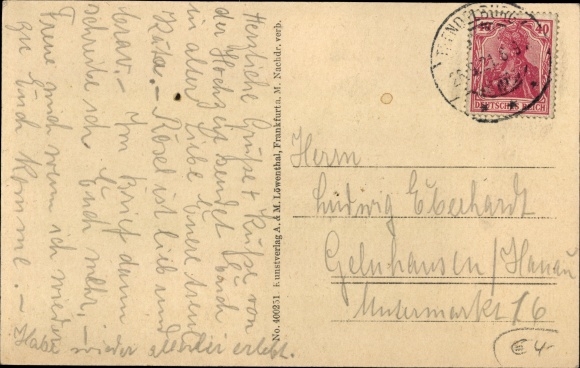 Herzliche Grüße + Küße von
der Hochzeit sendet Euch
in aller Liebe Eure treue
Rösel ist lieb und
brav. – Im Brief dann
schreibe ich Euch mehr, –
Freue mich wenn ich wieder
zu Euch komme. –
Habe wieder allerlei erlebt.
No. 400251 Kunstverlag A. & M. Löwenthal, Frankfurt a. M. Nachdr. verb.
TRENDELBURG
40
DEUTSCHES REICH
Herrn
Ludwig Eberhardt
Gelnhausen / Hanau
Untermarkt 16
€ 4,-